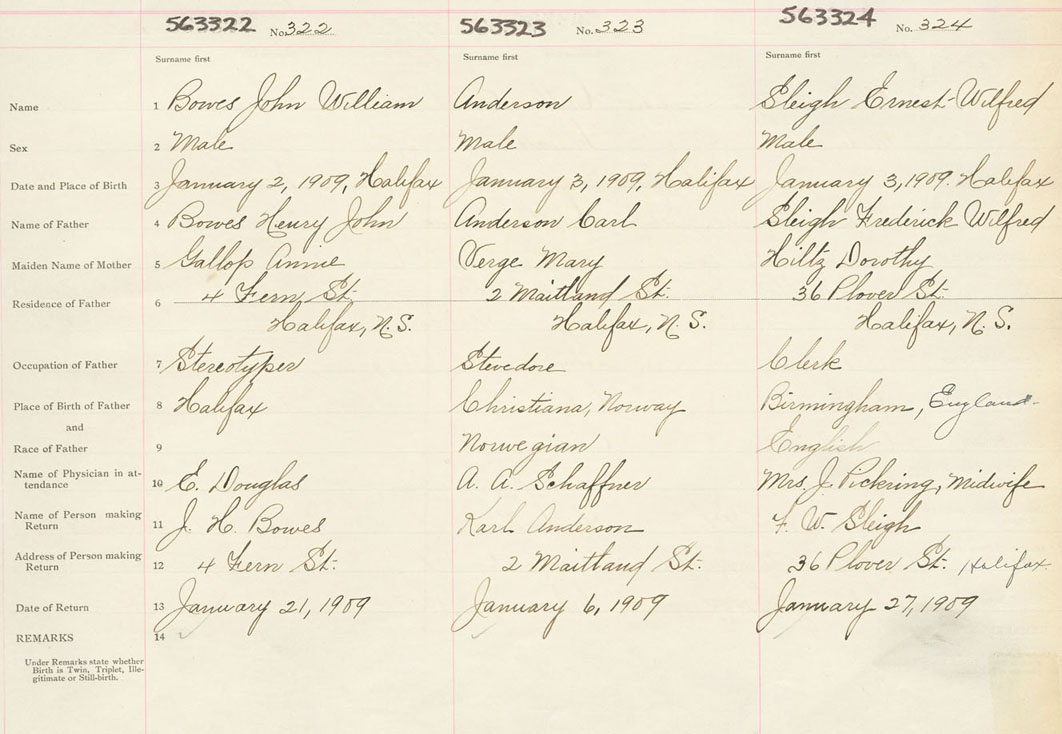 563322 No. 322 563323 No. 323 563324 No. 324
Surname first Surname first Surname first
Name 1 Bowes John William Anderson Sleigh Ernest Wilfred
Sex 2 Male Male Male
Date and Place of Birth 3 January 2, 1909, Halifax January 3, 1909, Halifax January 3, 1909. Halifax
Name of Father 4 Bowes Henry John Anderson Carl Sleigh Frederick Wilfred
Maiden Name of Mother 5 Gallop Annie Verge Mary Hiltz Dorothy
Residence of Father 6 4 Fern St. 2 Maitland St. 36 Plover St.
Halifax, N.S. Halifax, N.S. Halifax, N.S.
Occupation of Father 7 Stereotyper Stevedore Clerk
Place of Birth of Father 8 Halifax Christiana, Norway Birmingham, England.
and
Race of Father 9 Norwegian English
Name of Physician in at-
tendance 10 E. Douglas A. A. Schaffner Mrs. J. Pickring, Midwife
Name of Person making
Return 11 J. H. Bowes Karl Anderson F. W. Sleigh
Address of Person making
Return 12 4 Fern St. 2 Maitland St. 36 Plover St. Halifax.
Date of Return 13 January 21, 1909 January 6, 1909 January 27, 1909
REMARKS 14
Under Remarks state whether
Birth is Twin, Triplet, Ille-
gitimate or Still-birth.